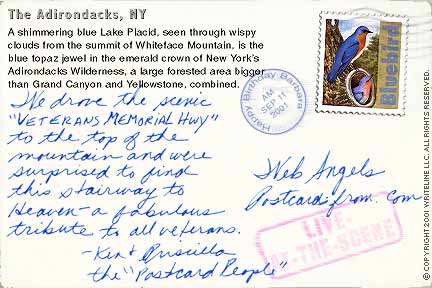 The Adirondacks, NY
A shimmering blue Lake Placid, seen through wispy
clouds from the summit of Whiteface Mountain, is the
blue topaz jewel in the emerald crown of New York's
Adirondacks Wilderness, a large forested area bigger
than Grand Canyon and Yellowstone, combined.
We drove the scenic
"VETERANS MEMORIAL HWY"
to the top of the
mountain and were
surprised to find
this stairway to
Heaven - a fabulous
tribute to all veterans.
- Ken & Priscilla
the "Postcard People"
Happy Birthday Barbara
AM
SEP 11
2001
Bluebird
Web Angels
Postcardsfrom.com
LIVE
ON-THE-SCENE
© COPYRIGHT 2001 WRITELINE LLC. ALL RIGHTS RESERVED.